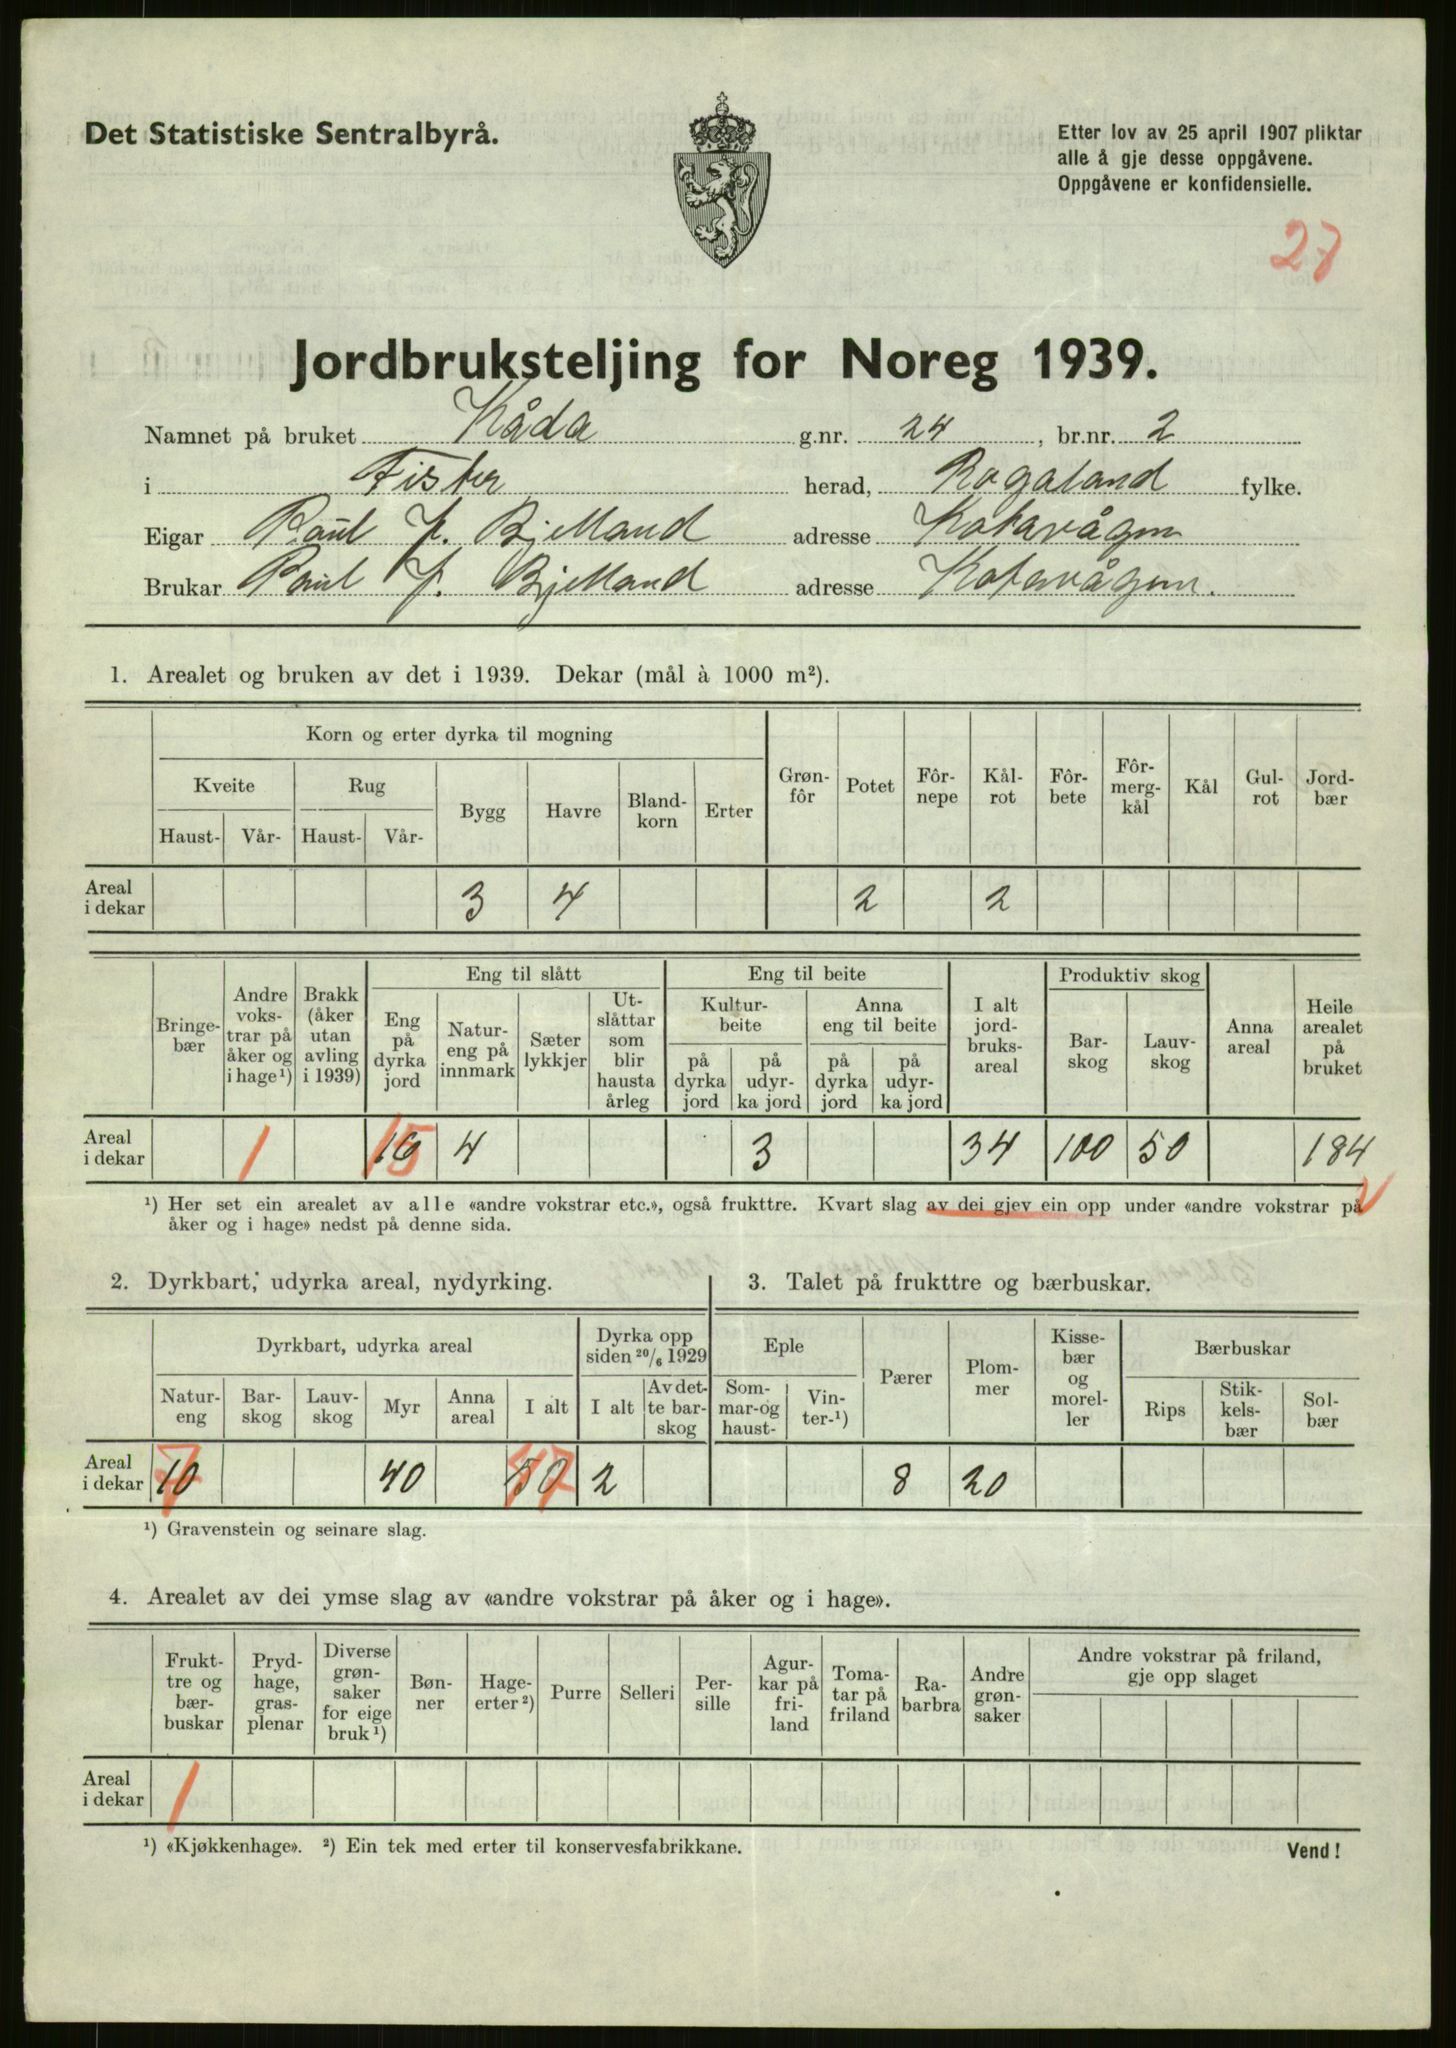 Det Statistiske Sentralbyrå.
Etter lov av 25 april 1907 pliktar
alle å gje desse oppgåvene.
Oppgåvene er konfidensielle.
27
Jordbruksteljing for Noreg 1939.
Namnet på bruket Kåda g.nr. 24, br.nr. 2
i Fister herad, Rogaland fylke.
Eigar Paul J. Bjelland adresse Kotavågen
Brukar Paul J. Bjelland adresse Kotavågen.
1. Arealet og bruken av det i 1939. Dekar (mål à 1000 m²).
Korn og erter dyrka til mogning
Kveite Rug Bygg Havre Bland-korn Erter Grøn-fôr Potet Fôr-nepe Kål-rot Fôr-bete Fôr-merg-kål Kål Gul-rot Jord-bær
Haust- Vår- Haust- Vår-
Areal i dekar 3 4 2 2
Eng til slått Eng til beite Produktiv skog
Kultur-beite Anna eng til beite
Bringe-bær Andre voks-trar på åker og i hage¹) Brakk (åker utan avling i 1939) Eng på dyrka jord Natur-eng på innmark Sæter lykkjer Ut-slåttar som blir hausta årleg på dyrka jord på udyr-ka jord på dyrka jord på udyr-ka jord I alt jord-bruks-areal Bar-skog Lauv-skog Anna areal Heile arealet på bruket
Areal i dekar 1 16 15 4 3 34 100 50 184
¹) Her set ein arealet av alle «andre vokstrar etc.», også frukttre. Kvart slag av dei gjev ein opp under «andre vokstrar på
åker og i hage» nedst på denne sida.
2. Dyrkbart, udyrka areal, nydyrking.
Dyrkbart, udyrka areal Dyrka opp siden 20/6 1929
Natur-eng Bar-skog Lauv-skog Myr Anna areal I alt I alt Av det-te bar-skog
Areal i dekar 10 7 40 50 47 2
3. Talet på frukttre og bærbuskar.
Eple Pærer Plom-mer Kisse-bær og morel-ler Bærbuskar
Som-mar-og haust- Vin-ter-¹) Rips Stik-kels-bær Sol-bær
8 20
¹) Gravenstein og seinare slag.
4. Arealet av dei ymse slag av «andre vokstrar på åker og i hage».
Frukt-tre og bær-buskar Pryd-hage, gras-plenar Diverse grøn-saker for eige bruk¹) Bøn-ner Hage-erter²) Purre Selleri Per-sille Agur-kar på fri-land Toma-tar på friland Ra-barbra Andre grøn-saker Andre vokstrar på friland, gje opp slaget
Areal i dekar 1
¹) «Kjøkkenhage». ²) Ein tek med erter til konservesfabrikkane.
Vend!